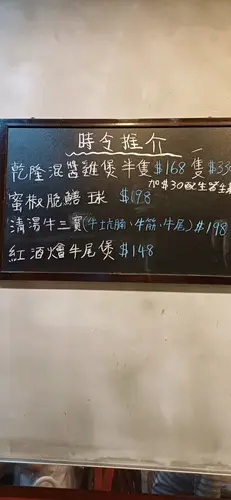 時令推介
乾隆混醬雞煲半隻$168 一隻$33
加$30配生
蜜椒脆鱔球 $198
清湯牛三寶(牛坑腩、牛筋、牛尾)$198
紅酒燴牛尾煲$148